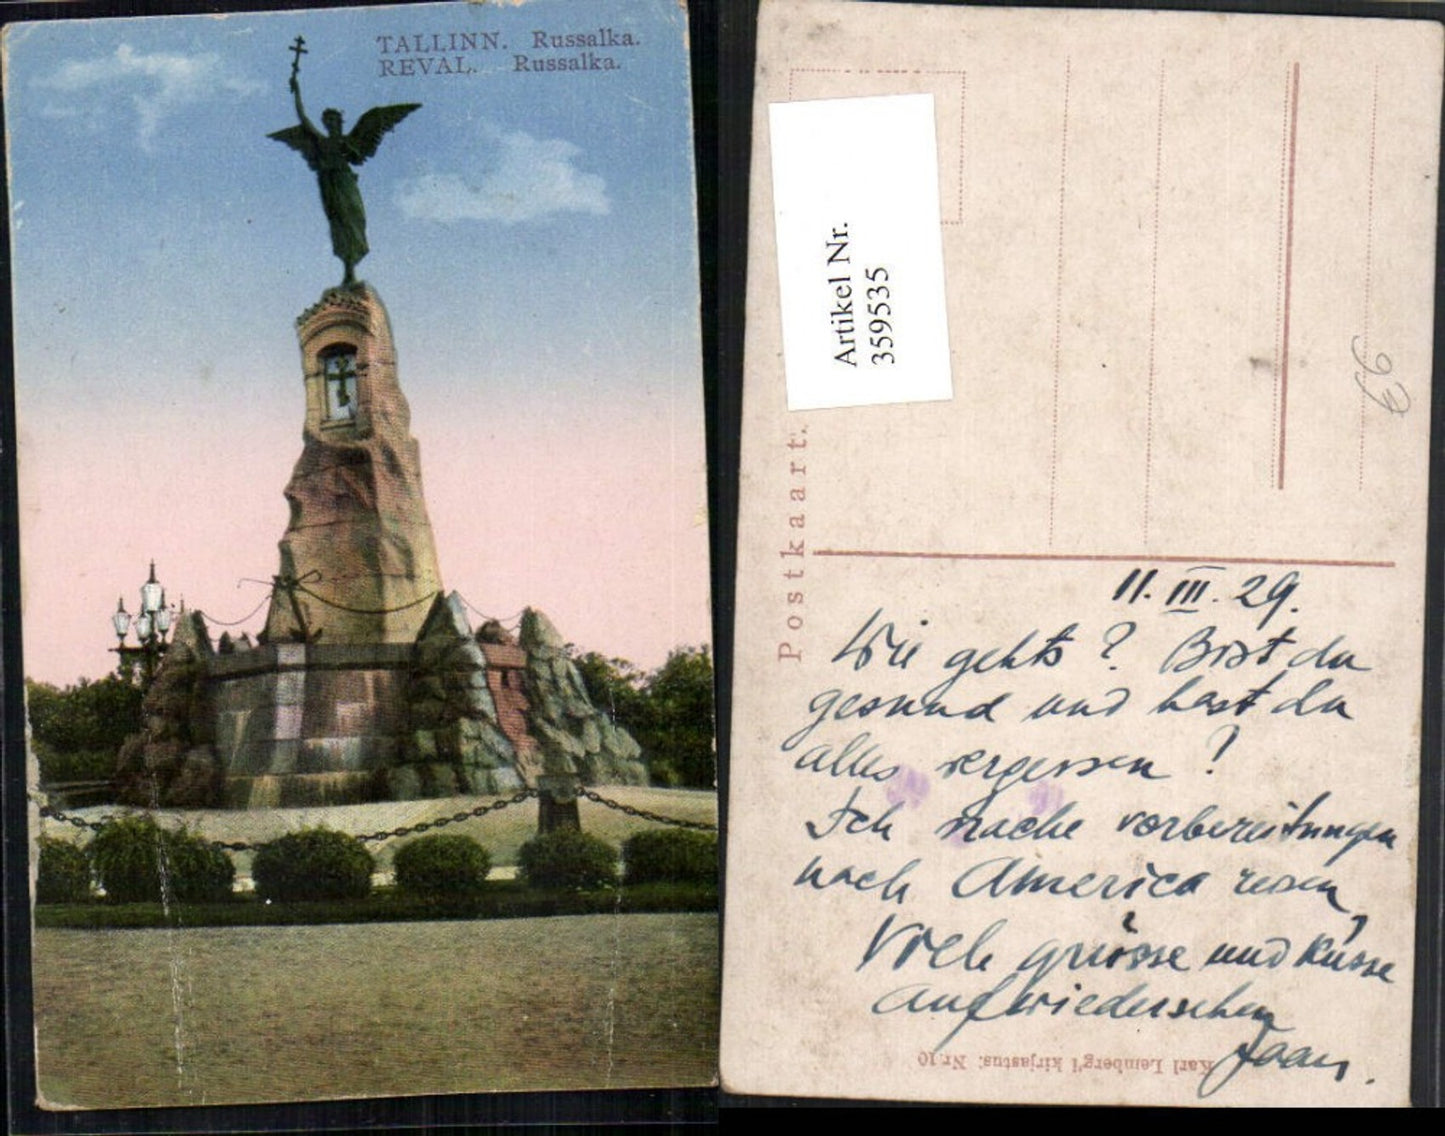 TALLINN. Russalka.
REVAL. Russalka.
Artikel Nr.
359535
Postkaart.
11. III. 29.
Wie gehts? Bist du
gesund und hast du
alles vergessen?
Ich mache vorbereitungen
nach America resen,
Viele grüsse und Küsse
aufwiedersehen
Jaan.
Karl Leinberg'i kirjastus. Nr. 10